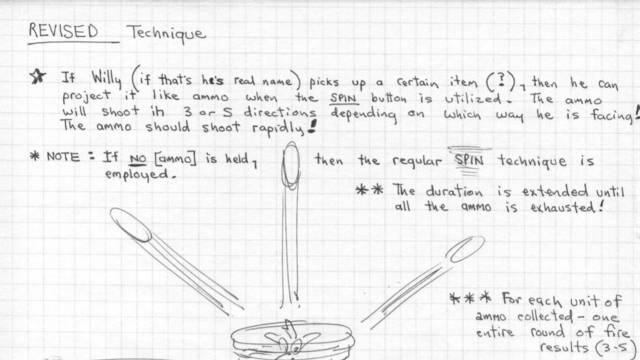 REVISED Technique
☆ If Willy (if that's he's real name) picks up a certain item (?), then he can
project it like ammo when the SPIN button is utilized. The ammo
will shoot in 3 or 5 directions depending on which way he is facing!
The ammo should shoot rapidly!
* NOTE: If NO [ammo] is held, then the regular SPIN technique is
employed.
** The duration is extended until
all the ammo is exhausted!
*** For each unit of
ammo collected - one
entire round of fire
results (3-5)